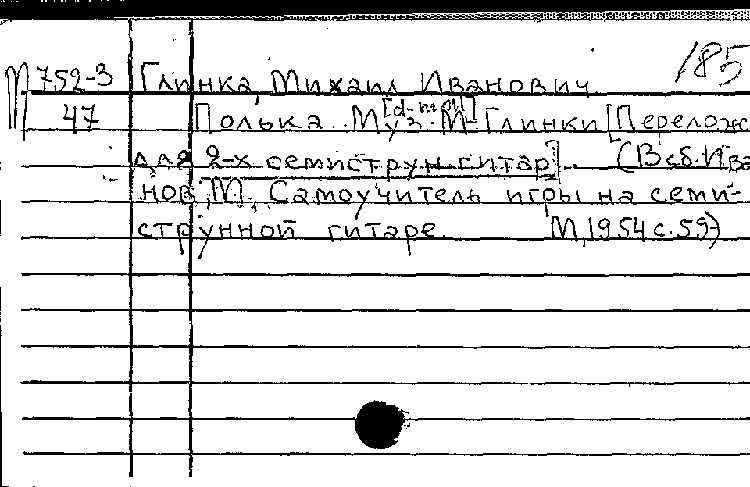 185
М 752-3 Глинка, Михаил Иванович
47 Полька. Муз. М. Глинки [Перелож
[d-moll]
для 2-х семиструн. гитар]. (В сб. Ива
нов, М. Самоучитель игры на семи-
струнной гитаре. М, 1954 с. 59)